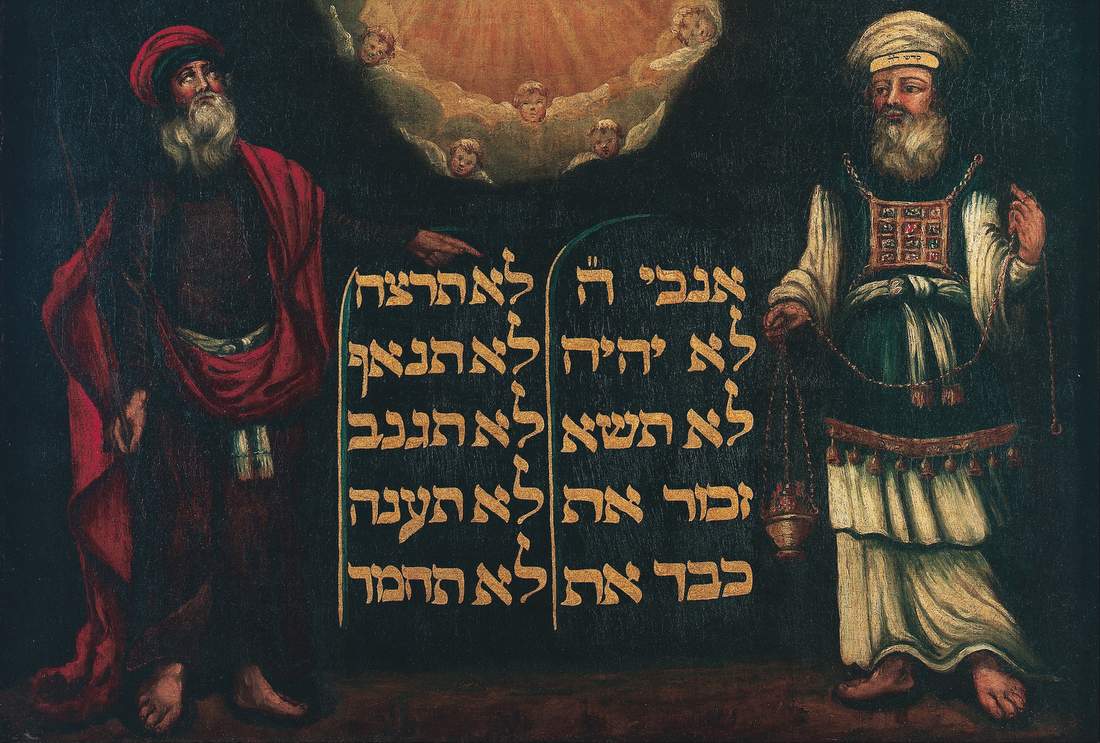 אנכי ה״
לא יהיה
לא תשא
זכור את
כבד את
לא תרצח
לא תנאף
לא תגנב
לא תענה
לא תחמד